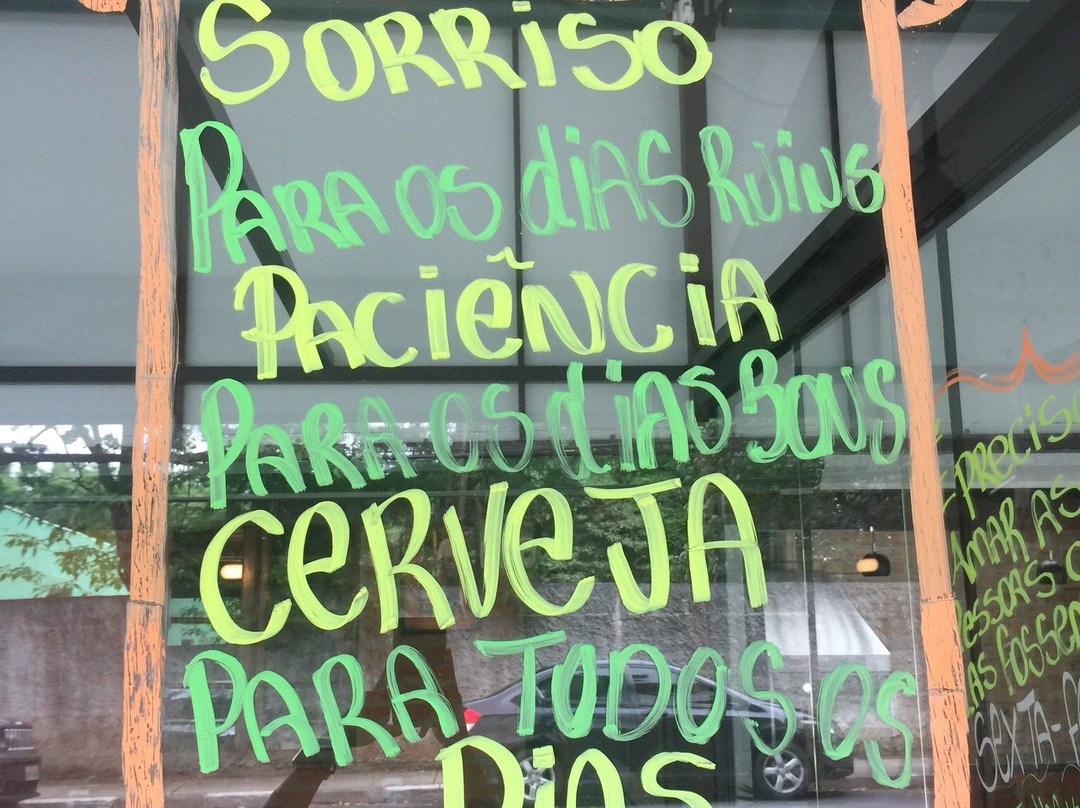 SORRISO
PARA OS DIAS RUINS
PACIÊNCIA
PARA OS DIAS BONS
CERVEJA
PARA TODOS OS
DIAS
É PRECISO
AMAR AS
PESSOAS
SEXTA-